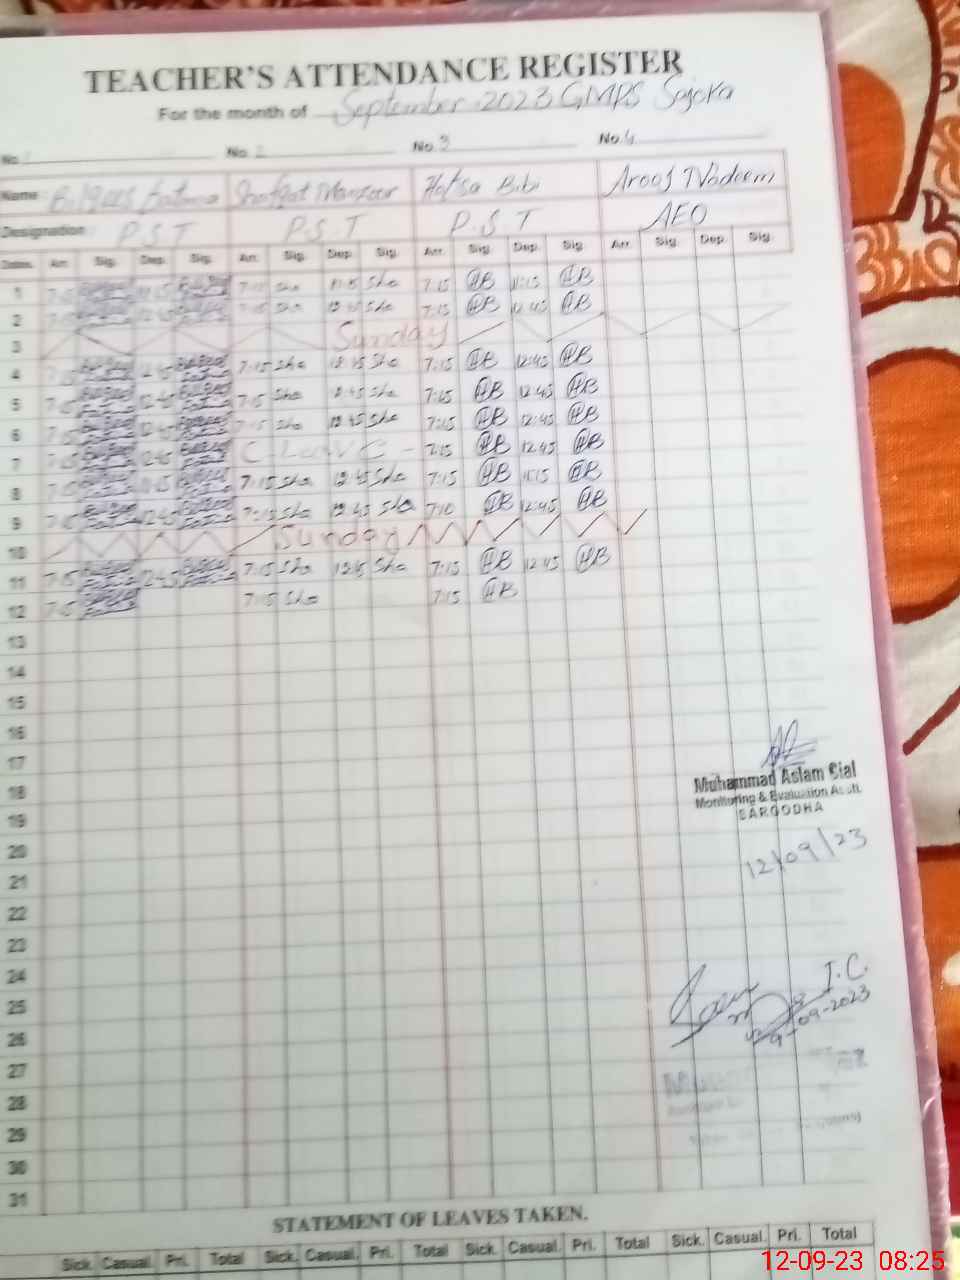 TEACHER'S ATTENDANCE REGISTER
For the month of September 2023 GMPS Sajoka
No. 1 No. 2 No. 3 No. 4
Name Bilqees Fatima Shafqat Manzoor Hafsa Bibi Arooj Nadeem
Designation P.S.T P.S.T P.S.T AEO
Dates. Arr. Sig. Dep. Sig. Arr. Sig. Dep. Sig. Arr. Sig. Dep. Sig. Arr. Sig. Dep. Sig.
1 7:15 7:15 Sha Sha 7:15 HB 11:15 HB
2 7:15 7:15 Sha 12:45 Sha 7:15 HB 12:45 HB
3 Sunday
4 7:15 12:45 7:15 Sha 12:45 Sha 7:15 HB 12:45 HB
5 7:15 12:45 7:15 Sha 12:45 Sha 7:15 HB 12:45 HB
6 7:15 12:45 7:15 Sha 12:45 Sha 7:15 HB 12:45 HB
7 7:15 12:45 C Leave 7:15 HB 12:45 HB
8 7:15 7:15 Sha 12:45 Sha 7:15 HB 11:15 HB
9 7:15 12:45 7:15 Sha 12:45 Sha 7:10 HB 12:45 HB
10 Sunday
11 7:15 12:45 7:15 Sha Sha 7:15 HB 12:45 HB
12 7:15 7:15 Sha 7:15 HB
13
14
15
16
17
18
19
20
21
22
23
24
25
26
27
28
29
30
31
Muhammad Aslam Sial
Monitoring & Evaluation Asstt.
SARGODHA
12/09/23
T.C.
09-2023
STATEMENT OF LEAVES TAKEN.
Sick. Casual. Pri. Total Sick. Casual. Pri. Total Sick. Casual. Pri. Total Sick. Casual. Pri. Total
12-09-23 08:25